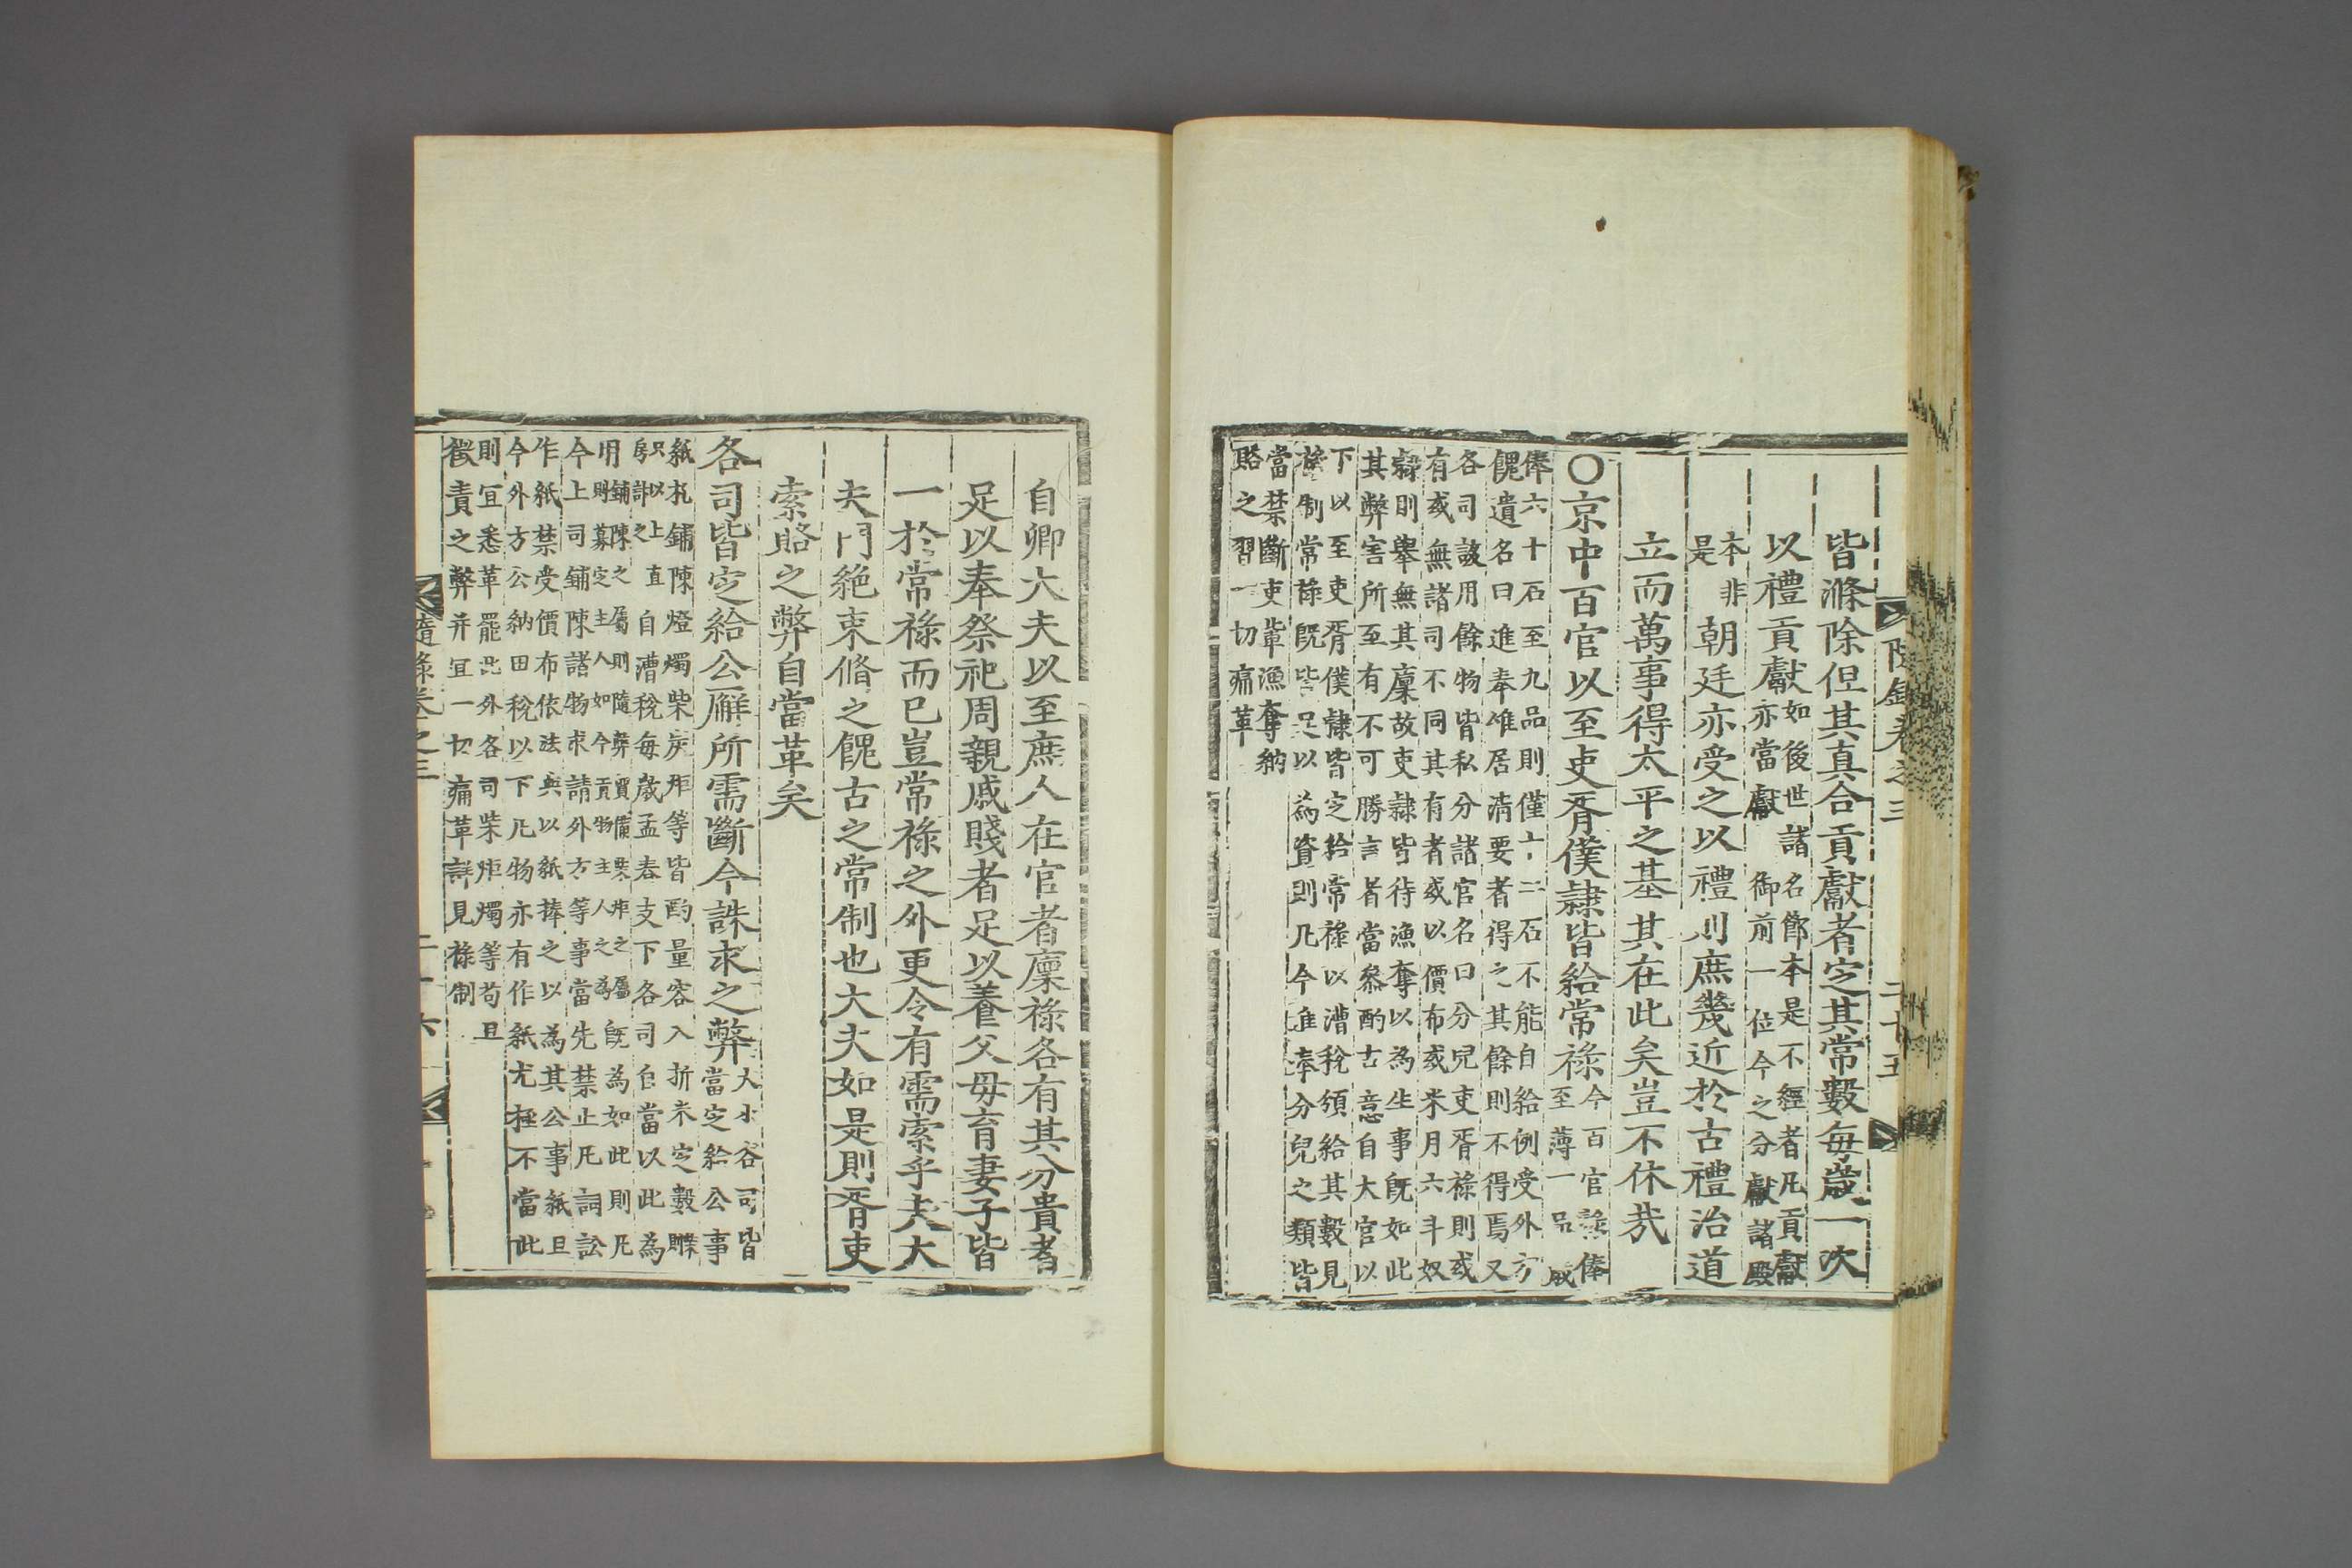 隨錄卷之三 二十五
皆滌除但其眞合貢獻者定其常數每歲一次
以禮貢獻如後世諸名節本是不經者凡貢獻
亦當獻御前一位今之分獻諸殿
本非
是
朝廷亦受之以禮則庶幾近於古禮治道
立而萬事得太平之基其在此矣豈不休哉
○京中百官以至吏胥僕隷皆給常祿今百官祿俸
至薄一品歲
俸六十石至九品則僅十二石不能自給例受外方
餽遺名曰進奉唯居淸要者得之其餘則不得焉又
各司該用餘物皆私分諸官名曰分兒吏胥祿則或
有或無諸司不同其有者或以價布或米月六斗奴
隷則擧無其廩故吏隷皆待漁奪以爲生事旣如此
其弊害所至有不可勝言者當參酌古意自大官以
下以至吏胥僕隷皆定給常祿以漕稅頒給其數見
祿制常祿旣皆足以爲資則凡今進奉分兒之類皆
當禁斷吏輩漁奪納
賂之習一切痛革
自卿大夫以至庶人在官者廩祿各有其分貴者
足以奉祭祀周親戚賤者足以養父母育妻子皆
一於常祿而已豈常祿之外更令有需索乎夫大
夫門絶束脩之餽古之常制也大夫如是則胥吏
索賂之弊自當革矣
各司皆定給公廨所需斷今誅求之弊大小各司皆
當定給公事
紙札鋪陳燈燭柴炭炬等皆酌量容入折米定數
只以上直房計之自漕稅每歲孟春支下各司自當以此爲
用鋪陳之屬則隨弊買備柴炬之屬旣爲如此則凡
則募定主人如今貢物主人之爲
今上司鋪陳諸物求請外方等事當先禁止凡詞訟
作紙禁受價布依法與以紙捧之以爲其公事紙且
今外方公納田稅以下凡物亦有作紙尤極不當此
則宜悉革罷此外各司柴炬燭等苟且
徵責之弊幷宜一切痛革詳見祿制
隨錄卷之三 二十六